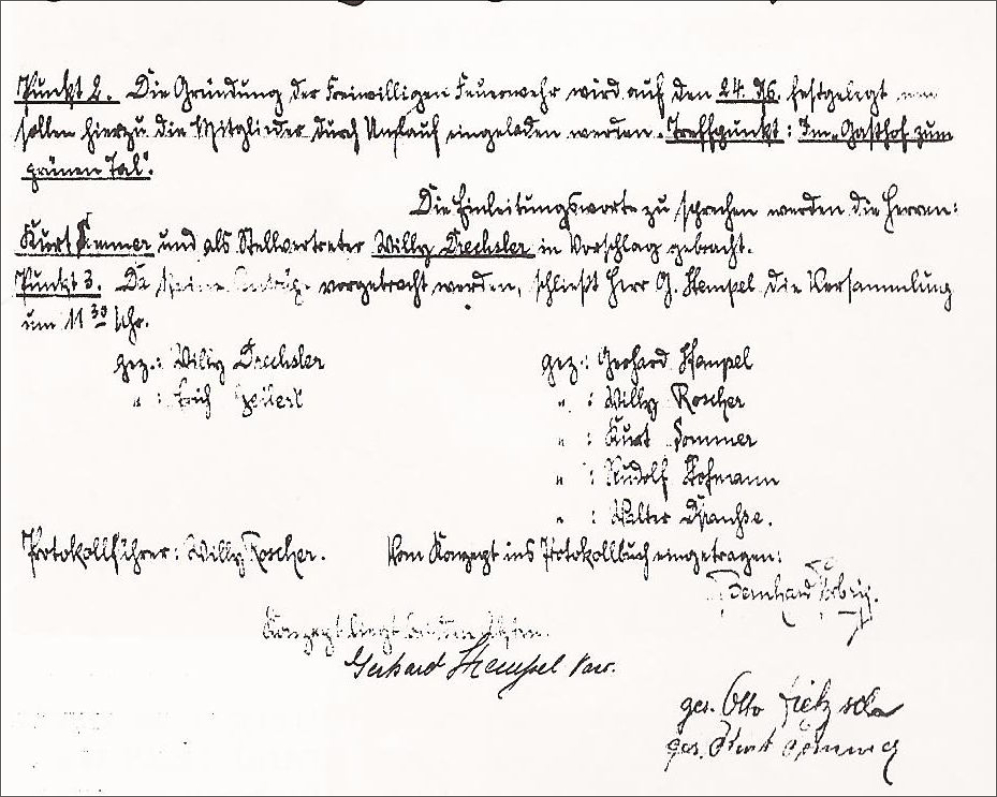 Punkt 2. Die Gründung der Freiwilligen Feuerwehr wird auf den 24. festgelegt
sollen hierzu die Mitglieder durch Umlauf eingeladen werden. Treffpunkt: Im „Gasthof zum
grünen Tal".
Die Einleitungsworte zu sprechen werden die Herren:
Kurt Sommer und als Stellvertreter Willy Drechsler in Vorschlag gebracht.
Punkt 3. Da keine Anträge vorgebracht werden, schließt Herr G. Hempel die Versammlung
um 11 30 Uhr.
gez.: Willy Drechsler
gez.: Gerhard Hempel
" : Erich
" : Willy Roscher
" : Kurt Sommer
" : Rudolf Hofmann
" : Walter
Protokollführer: Willy Roscher.
Vom Konzept ins Protokollbuch eingetragen:
Bernhard
Konzept liegt bei den Akten.
Gerhard Hempel
ges. Otto
ges. Kurt